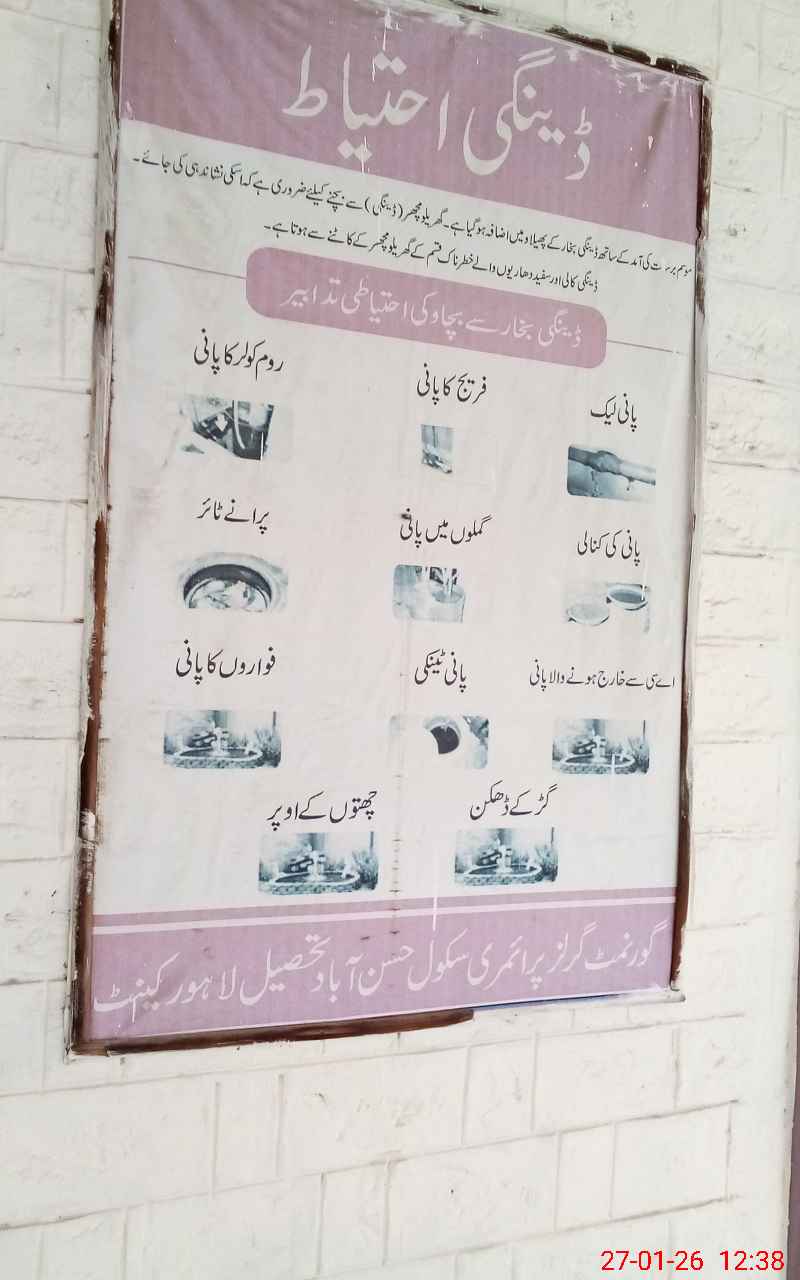 ڈینگی احتیاط
موسم برسات کی آمد کے ساتھ ڈینگی بخار کے پھیلاو میں اضافہ ہو گیا ہے۔ گھریلو مچھر (ڈینگی) سے بچنے کیلئے ضروری ہے کہ اسکی نشاندہی کی جائے۔
ڈینگی کالی اور سفید دھاریوں والے خطرناک قسم کے گھریلو مچھر کے کاٹنے سے ہوتا ہے۔
ڈینگی بخار سے بچاو کی احتیاطی تدابیر
پانی لیک
فریج کا پانی
روم کولر کا پانی
پانی کی کنالی
گملوں میں پانی
پرانے ٹائر
اے سی سے خارج ہونے والا پانی
پانی ٹینکی
فواروں کا پانی
گڑ کے ڈھکن
چھتوں کے اوپر
گورنمنٹ گرلز پرائمری سکول حسن آباد تحصیل لاہور کینٹ
27-01-26 12:38